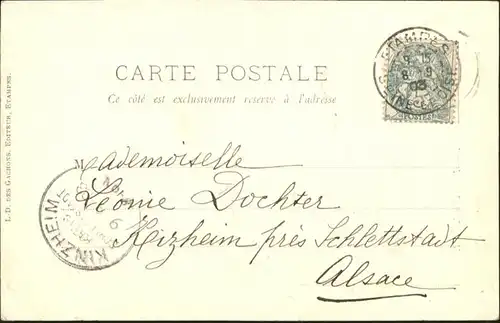 CARTE POSTALE
Ce côté est exclusivement réservé à l'adresse
ETAMPES
8 9
03
SEINE-ET-OISE
POSTES
L. D. DES GACHONS, EDITEUR, ETAMPES.
Mademoiselle
Léonie Dochter
Kizheim près Schlettstadt
Alsace
KINZHEIM
9